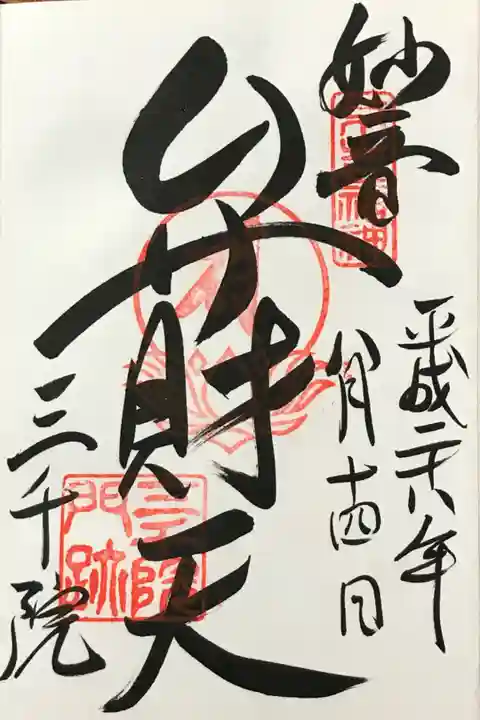 妙音
弁財天
平成二十八年
八月十四日
三千院
三千院
門跡